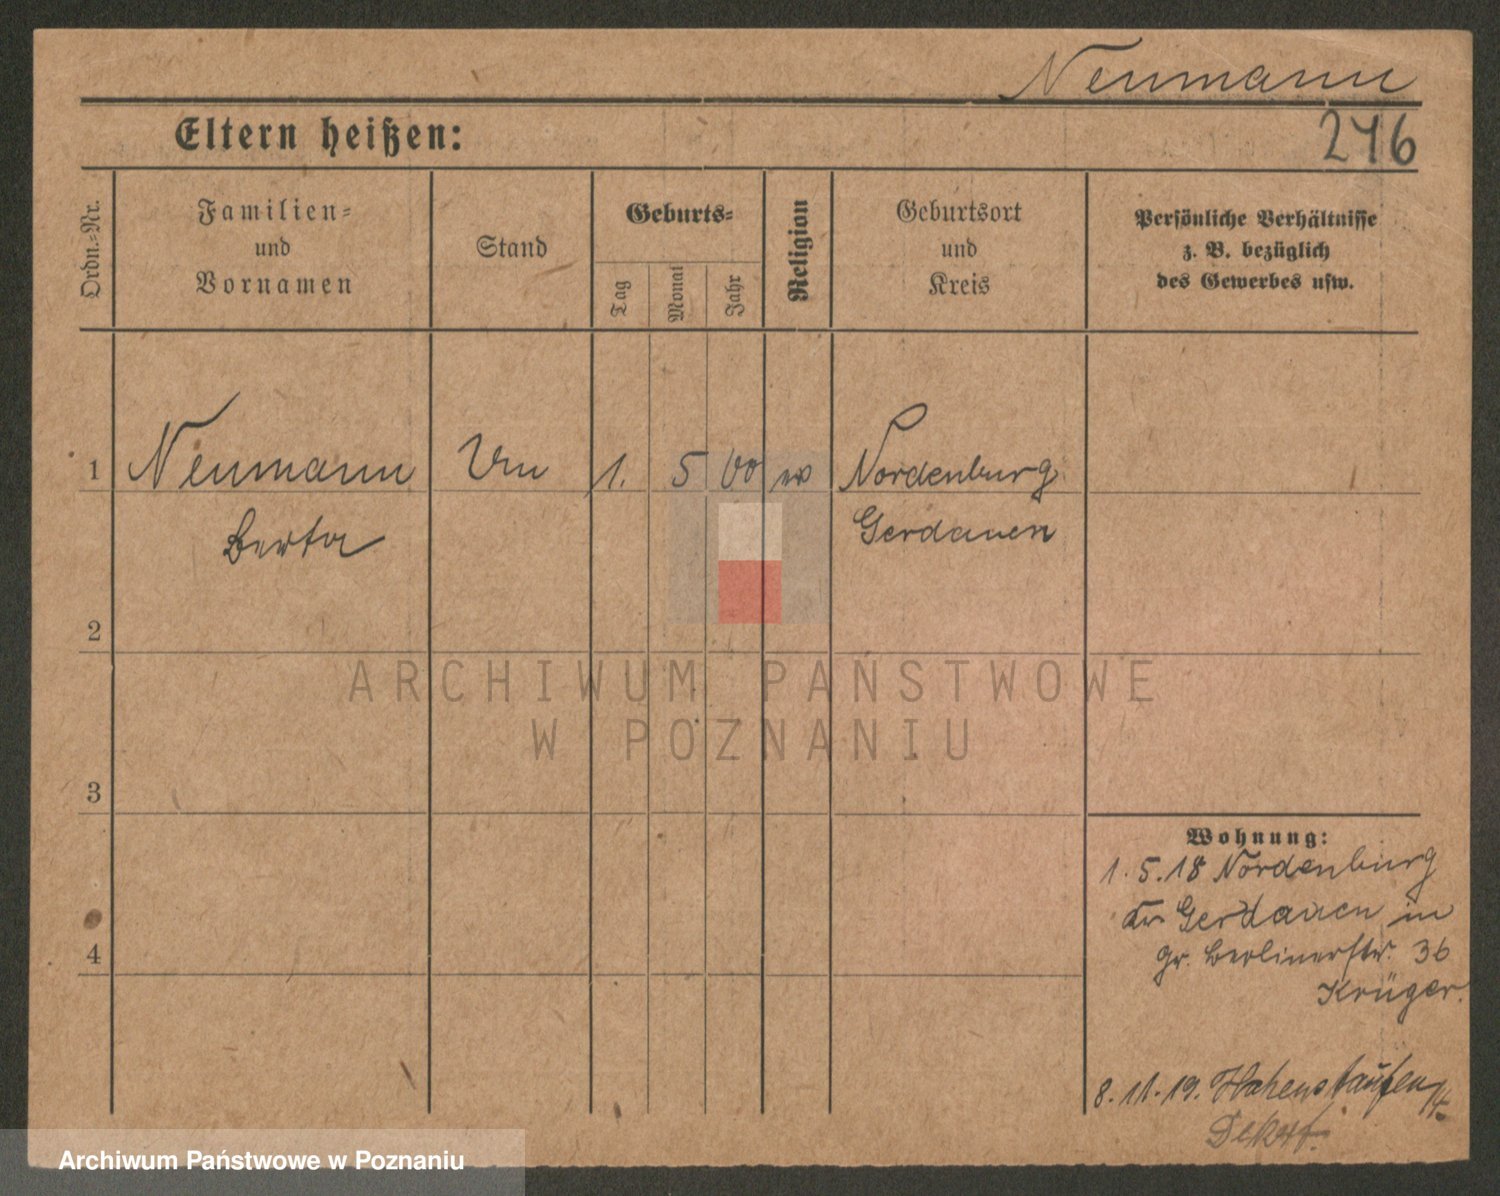 Neumann
Eltern heißen:
246
Ordn.-Nr.
Familien-
und
Vornamen
Stand
Geburts-
Tag
Monat
Jahr
Religion
Geburtsort
und
Kreis
Persönliche Verhältnisse
z. B. bezüglich
des Gewerbes usw.
1
Neumann
1.
5
00
ev
Nordenburg
Berta
Gerdauen
2
ARCHIWUM PAŃSTWOWE
W POZNANIU
3
Wohnung:
1.5.18 Nordenburg
Kr Gerdauen in
gr. Berlinerstr. 36
Krüger.
4
8.11.19. Hohenstaufen
Archiwum Państwowe w Poznaniu